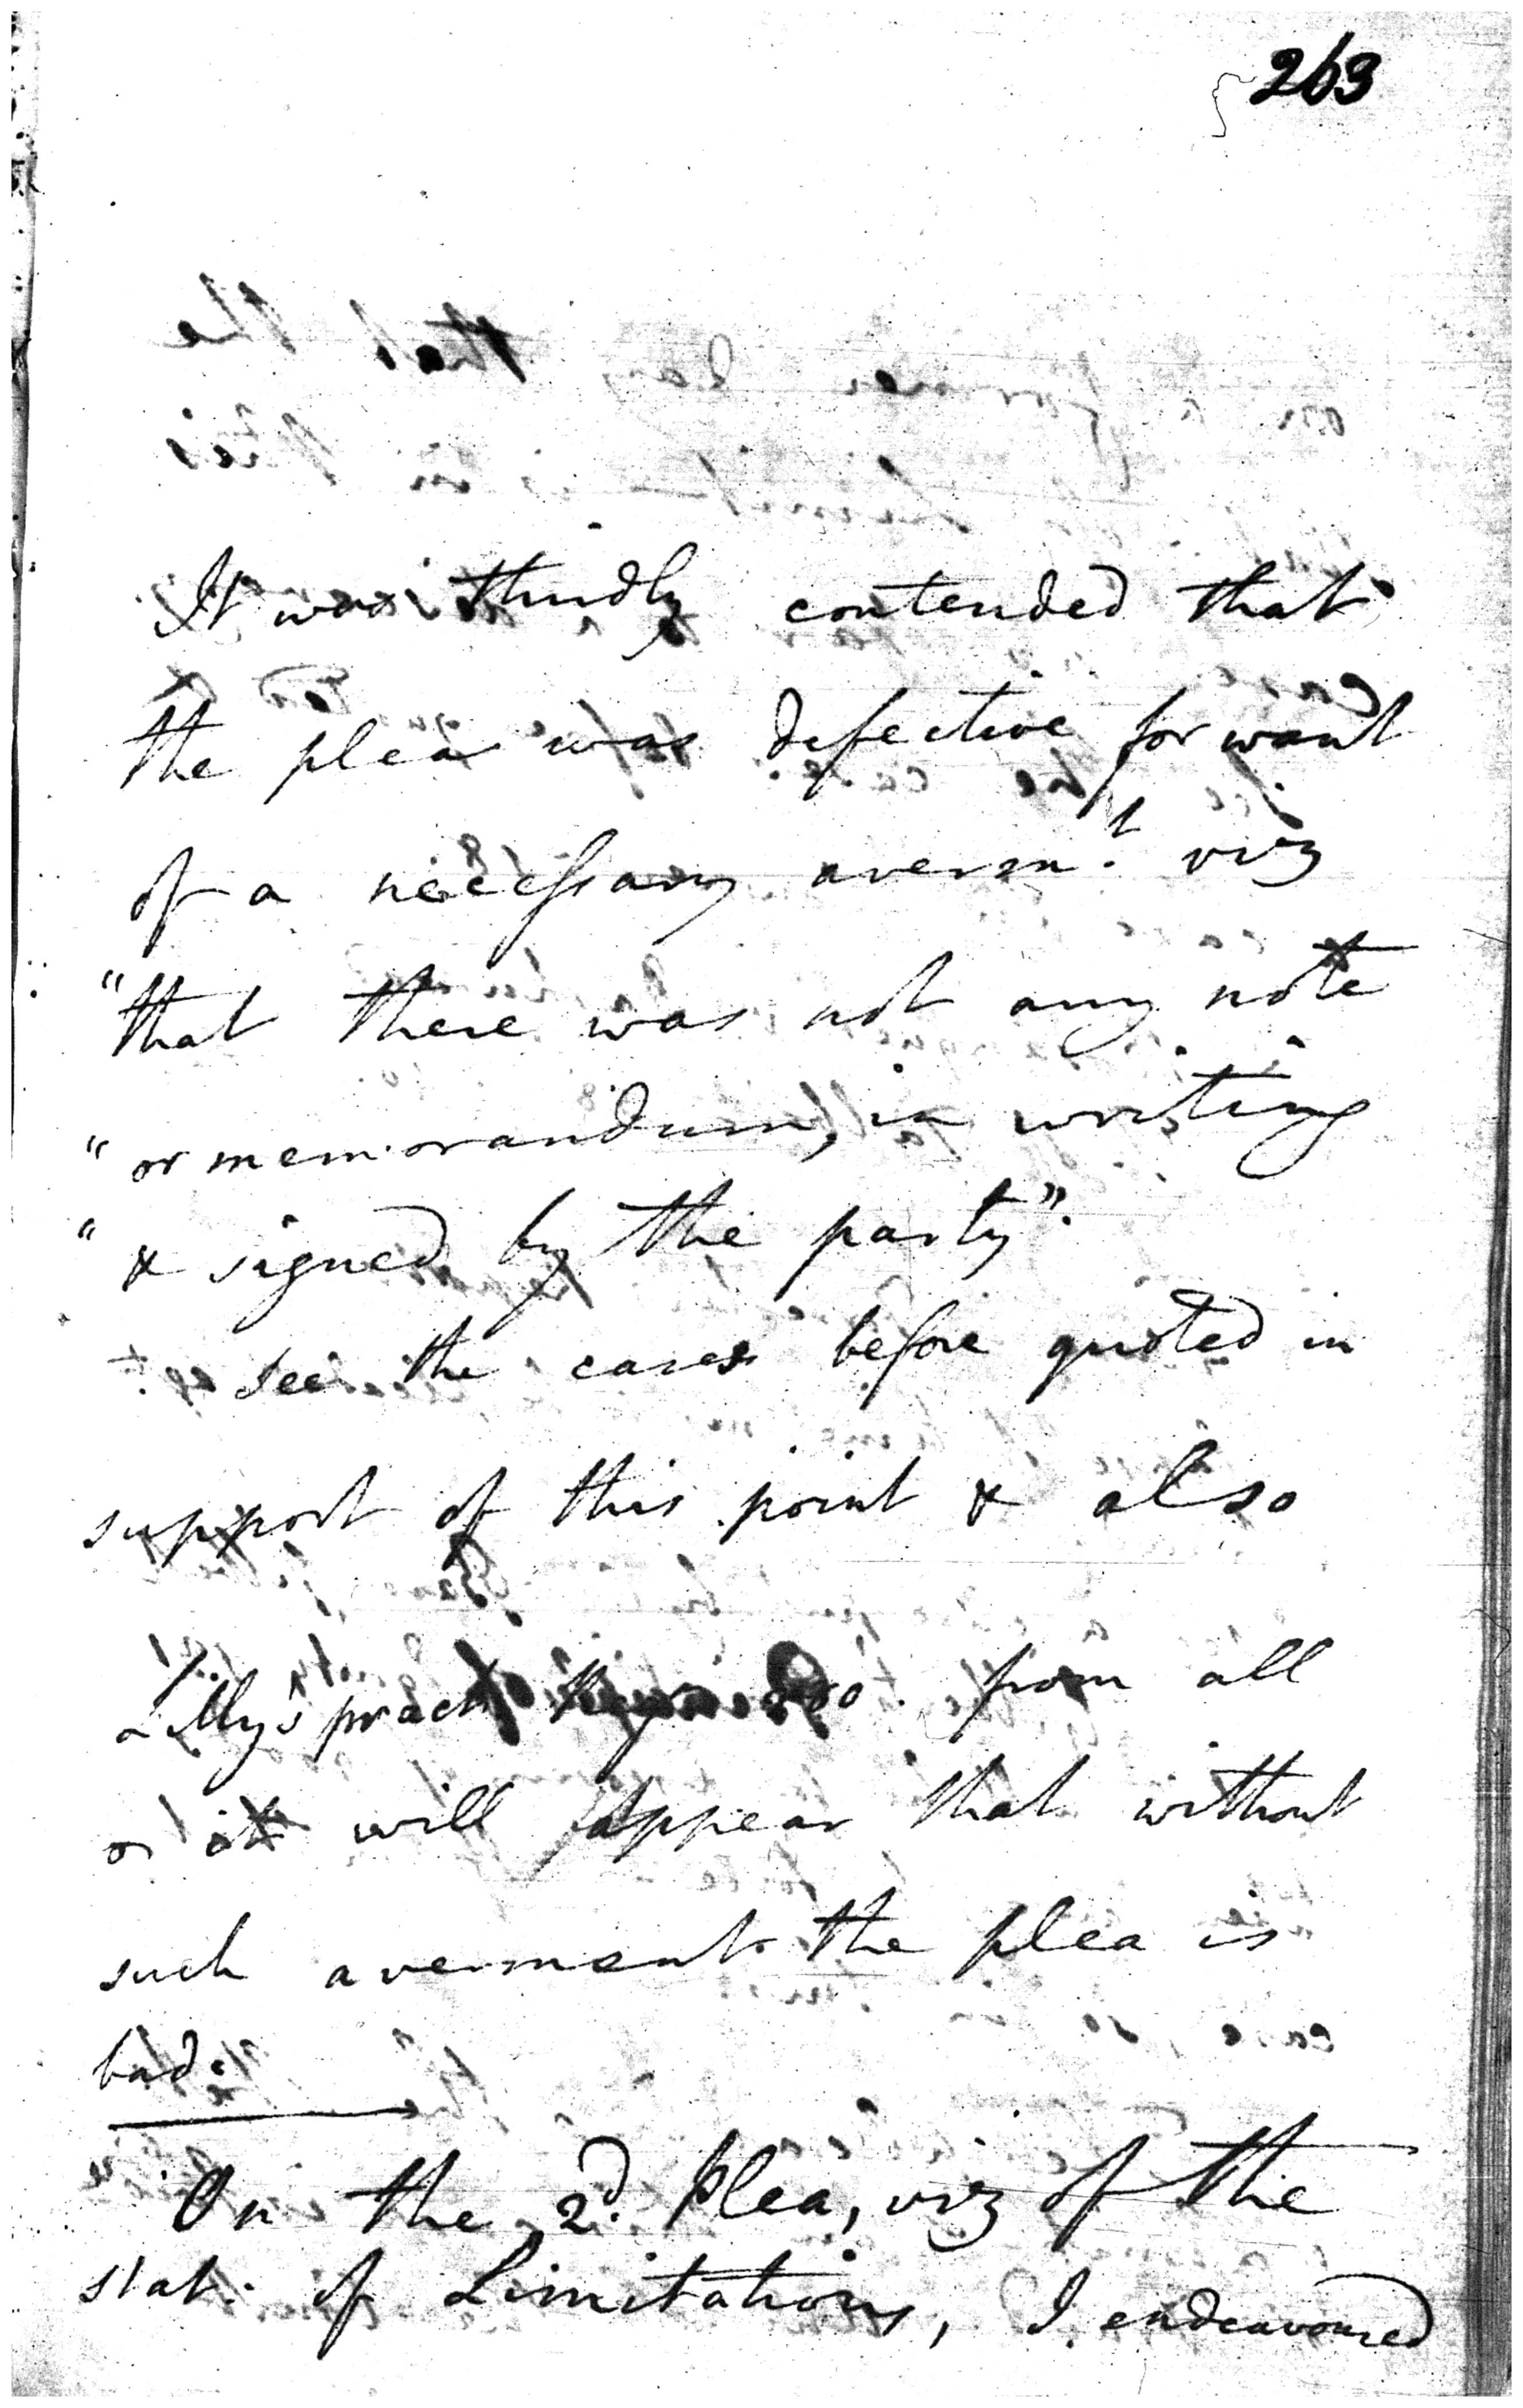 263
It was thirdly contended that
the plea was defective for want
of a necessary averm.t viz
"that there was not any note
"or memorandum, in writing
"& signed by the party".
see the cases before quoted in
support of this point & also
Lilly's pract. from all
it will appear that without
such averment the plea is
bad.
On the 2.d Plea, viz of the
stat. of Limitations, I endeavoured